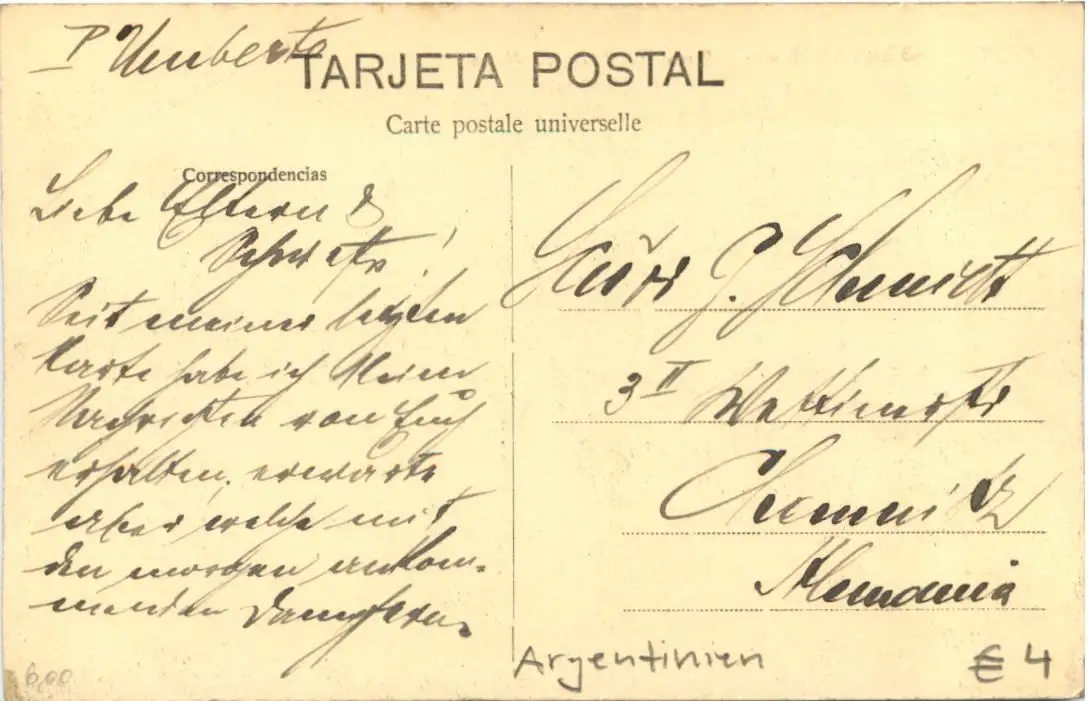 P Umberto
TARJETA POSTAL
Carte postale universelle
Correspondencias
Liebe Eltern &
Schwester!
Seit meiner letzten
Karte habe ich keine
Nachrichten von Euch
erhalten, erwarte
aber welche mit
den morgen ankom-
menden Dampfern.
G. Schmidt
3 II Wettinerstr
Chemnitz
Alemania
Argentinien
€ 4
6,00